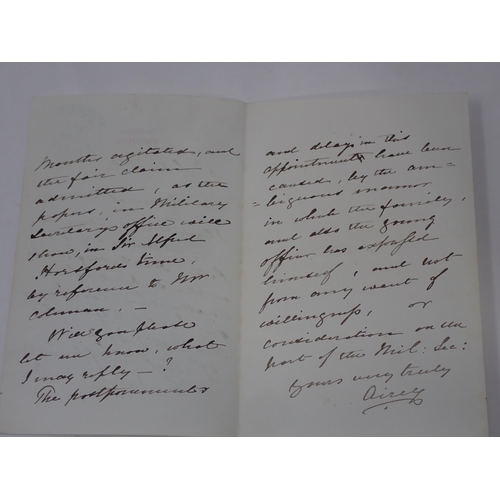 Months agitated, and
the fair claim
admitted, as the
papers, in Military
Secretary's office will
show, in Sir Alfred
Horsford's time,
by reference to
Will you please
let me know, what
I may reply — ?
The postponements
and delays in this
appointment have been
caused, by the am=
=biguous manner
in which the family,
and also the young
officer has expressed
himself, and not
from any want of
willingness, or
consideration on the
part of the Mil: Sec:
Yours very truly
Airey